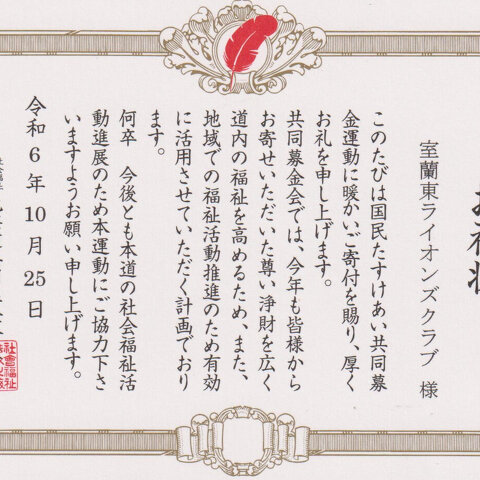 お礼状
室蘭東ライオンズクラブ 様
このたびは国民たすけあい共同募
金運動に暖かいご寄付を賜り、厚く
お礼を申し上げます。
共同募金会では、今年も皆様から
お寄せいただいた尊い浄財を広く
道内の福祉を高めるため、また、
地域での福祉活動推進のため有効
に活用させていただく計画でおり
ます。
何卒 今後とも本道の社会福祉活
動進展のため本運動にご協力下さ
いますようお願い申し上げます。
令和6年10月25日
社会福祉
社會福祉